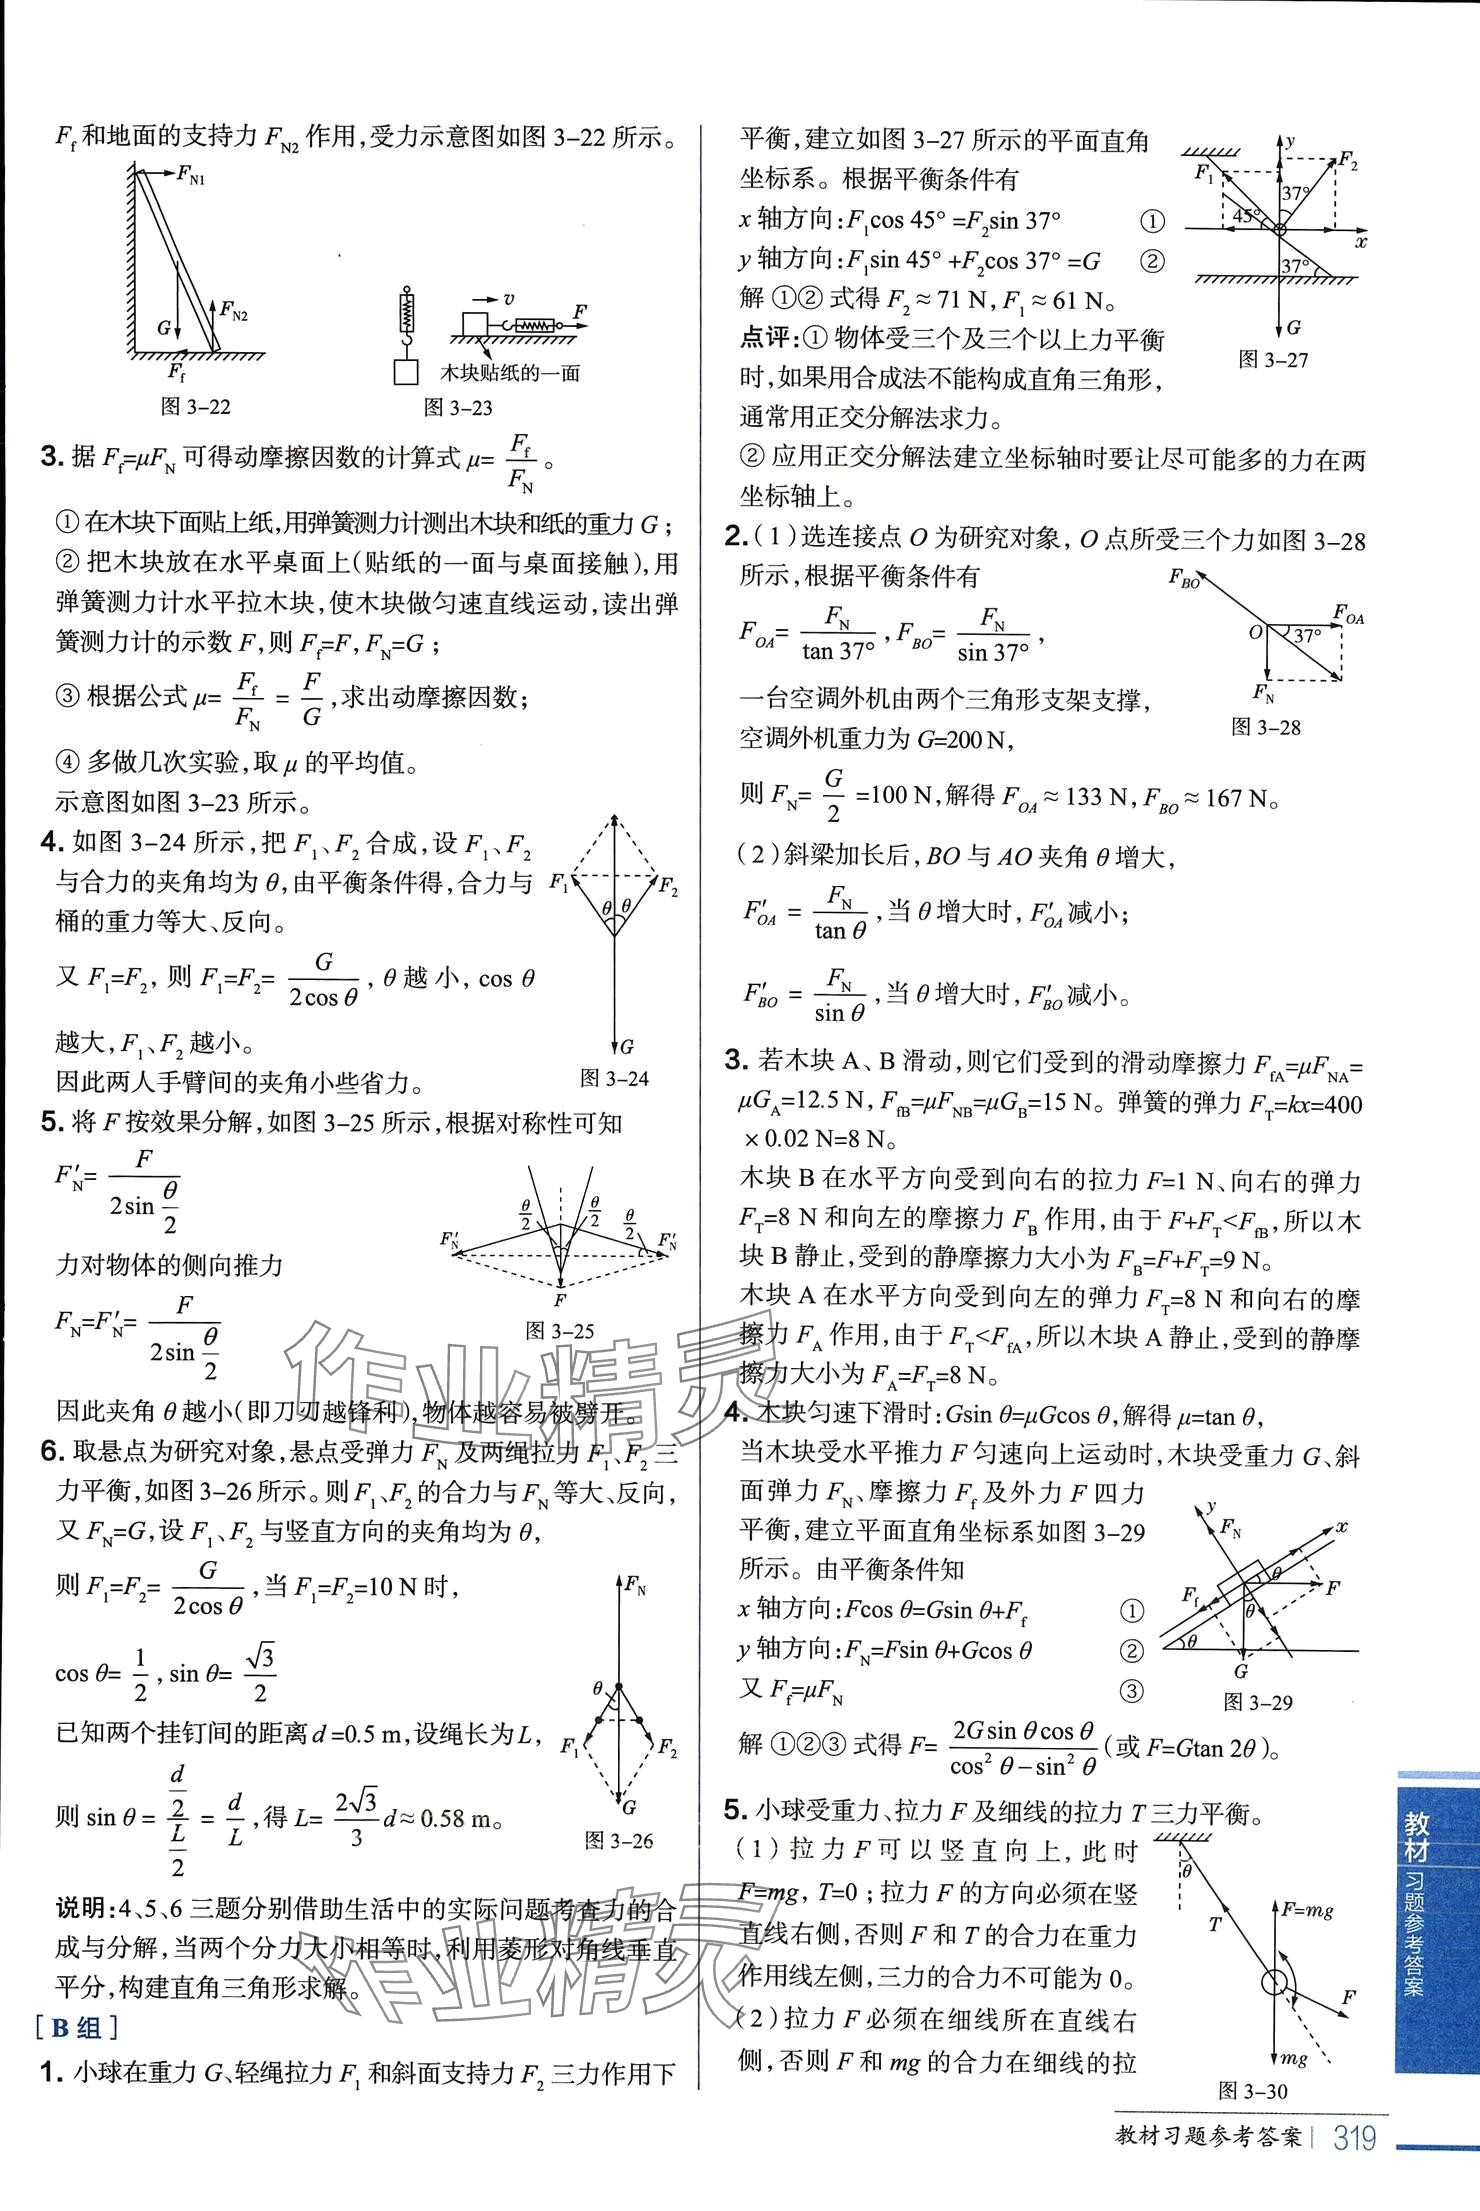 F_f和地面的支持力 F_N2 作用,受力示意图如图 3-22 所示。
F_N1
G
F_N2
F_f
图 3-22
v
F
木块贴纸的一面
图 3-23
3. 据 F_f=μF_N 可得动摩擦因数的计算式 μ= F_f/F_N 。
① 在木块下面贴上纸,用弹簧测力计测出木块和纸的重力 G ;
② 把木块放在水平桌面上(贴纸的一面与桌面接触),用
弹簧测力计水平拉木块,使木块做匀速直线运动,读出弹
簧测力计的示数 F,则 F_f=F, F_N=G ;
③ 根据公式 μ= F_f/F_N = F/G ,求出动摩擦因数;
④ 多做几次实验,取 μ 的平均值。
示意图如图 3-23 所示。
4. 如图 3-24 所示,把 F_1、F_2 合成,设 F_1、F_2
与合力的夹角均为 θ,由平衡条件得,合力与
桶的重力等大、反向。
又 F_1=F_2, 则 F_1=F_2= G/(2cos θ) , θ 越 小, cos θ
越大, F_1、F_2 越小。
因此两人手臂间的夹角小些省力。
F_1
F_2
θ θ
G
图 3-24
5. 将 F 按效果分解,如图 3-25 所示,根据对称性可知
F′_N= F/(2sin θ/2)
力对物体的侧向推力
F_N=F′_N= F/(2sin θ/2)
因此夹角 θ 越小(即刀刃越锋利),物体越容易被劈开。
F′_N
θ/2
θ/2
θ/2
F′_N
F
图 3-25
6. 取悬点为研究对象,悬点受弹力 F_N 及两绳拉力 F_1、F_2 三
力平衡,如图 3-26 所示。则 F_1、F_2 的合力与 F_N 等大、反向,
又 F_N=G, 设 F_1、F_2 与竖直方向的夹角均为 θ,
则 F_1=F_2= G/(2cos θ) ,当 F_1=F_2=10 N 时,
cos θ= 1/2 , sin θ= √3/2
已知两个挂钉间的距离 d =0.5 m,设绳长为 L,
则 sin θ = (d/2)/(L/2) = d/L ,得 L= 2√3/3 d≈ 0.58 m。
F_N
θ
F_1
F_2
G
图 3-26
说明:4、5、6 三题分别借助生活中的实际问题考查力的合
成与分解,当两个分力大小相等时,利用菱形对角线垂直
平分,构建直角三角形求解。
[ B 组 ]
1. 小球在重力 G、轻绳拉力 F_1 和斜面支持力 F_2 三力作用下
平衡,建立如图 3-27 所示的平面直角
坐标系。根据平衡条件有
x 轴方向:F_1cos 45° =F_2sin 37° ①
y 轴方向:F_1sin 45° +F_2cos 37° =G ②
解 ①② 式得 F_2 ≈ 71 N, F_1 ≈ 61 N。
点评:① 物体受三个及三个以上力平衡
时,如果用合成法不能构成直角三角形,
通常用正交分解法求力。
② 应用正交分解法建立坐标轴时要让尽可能多的力在两
坐标轴上。
y
F_1
F_2
37°
45°
x
37°
G
图 3-27
2. (1)选连接点 O 为研究对象, O 点所受三个力如图 3-28
所示,根据平衡条件有
F_OA= F_N/tan 37° , F_BO= F_N/sin 37° ,
一台空调外机由两个三角形支架支撑,
空调外机重力为 G=200 N,
则 F_N= G/2 =100 N,解得 F_OA ≈ 133 N, F_BO ≈ 167 N。
F_BO
F_OA
O
37°
F_N
图 3-28
(2)斜梁加长后, BO 与 AO 夹角 θ 增大,
F′_OA = F_N/tan θ ,当 θ 增大时, F′_OA 减小;
F′_BO = F_N/sin θ ,当 θ 增大时, F′_BO 减小。
3. 若木块 A、B 滑动,则它们受到的滑动摩擦力 F_fA=μF_NA=
μG_A=12.5 N, F_fB=μF_NB=μG_B=15 N。弹簧的弹力 F_T=kx=400
× 0.02 N=8 N。
木块 B 在水平方向受到向右的拉力 F=1 N、向右的弹力
F_T=8 N 和向左的摩擦力 F_B 作用,由于 F+F_T<F_fB,所以木
块 B 静止,受到的静摩擦力大小为 F_B=F+F_T=9 N。
木块 A 在水平方向受到向左的弹力 F_T=8 N 和向右的摩
擦力 F_A 作用,由于 F_T<F_fA,所以木块 A 静止,受到的静摩
擦力大小为 F_A=F_T=8 N。
4. 木块匀速下滑时:Gsin θ=μGcos θ,解得 μ=tan θ,
当木块受水平推力 F 匀速向上运动时,木块受重力 G、斜
面弹力 F_N、摩擦力 F_f 及外力 F 四力
平衡,建立平面直角坐标系如图 3-29
所示。由平衡条件知
x 轴方向:Fcos θ=Gsin θ+F_f ①
y 轴方向:F_N=Fsin θ+Gcos θ ②
又 F_f=μF_N ③
解 ①②③ 式得 F= 2Gsin θcos θ/(cos² θ-sin² θ) (或 F=Gtan 2θ)。
y
F_N
x
θ
F
F_f
θ
θ
G
图 3-29
5. 小球受重力、拉力 F 及细线的拉力 T 三力平衡。
(1) 拉力 F 可以竖直向上,此时
F=mg, T=0 ;拉力 F 的方向必须在竖
直线右侧,否则 F 和 T 的合力在重力
作用线左侧,三力的合力不可能为 0。
(2)拉力 F 必须在细线所在直线右
侧,否则 F 和 mg 的合力在细线的拉
θ
T
F=mg
F
mg
图 3-30
教材习题参考答案
教材习题参考答案 319
作业精灵
作业精灵